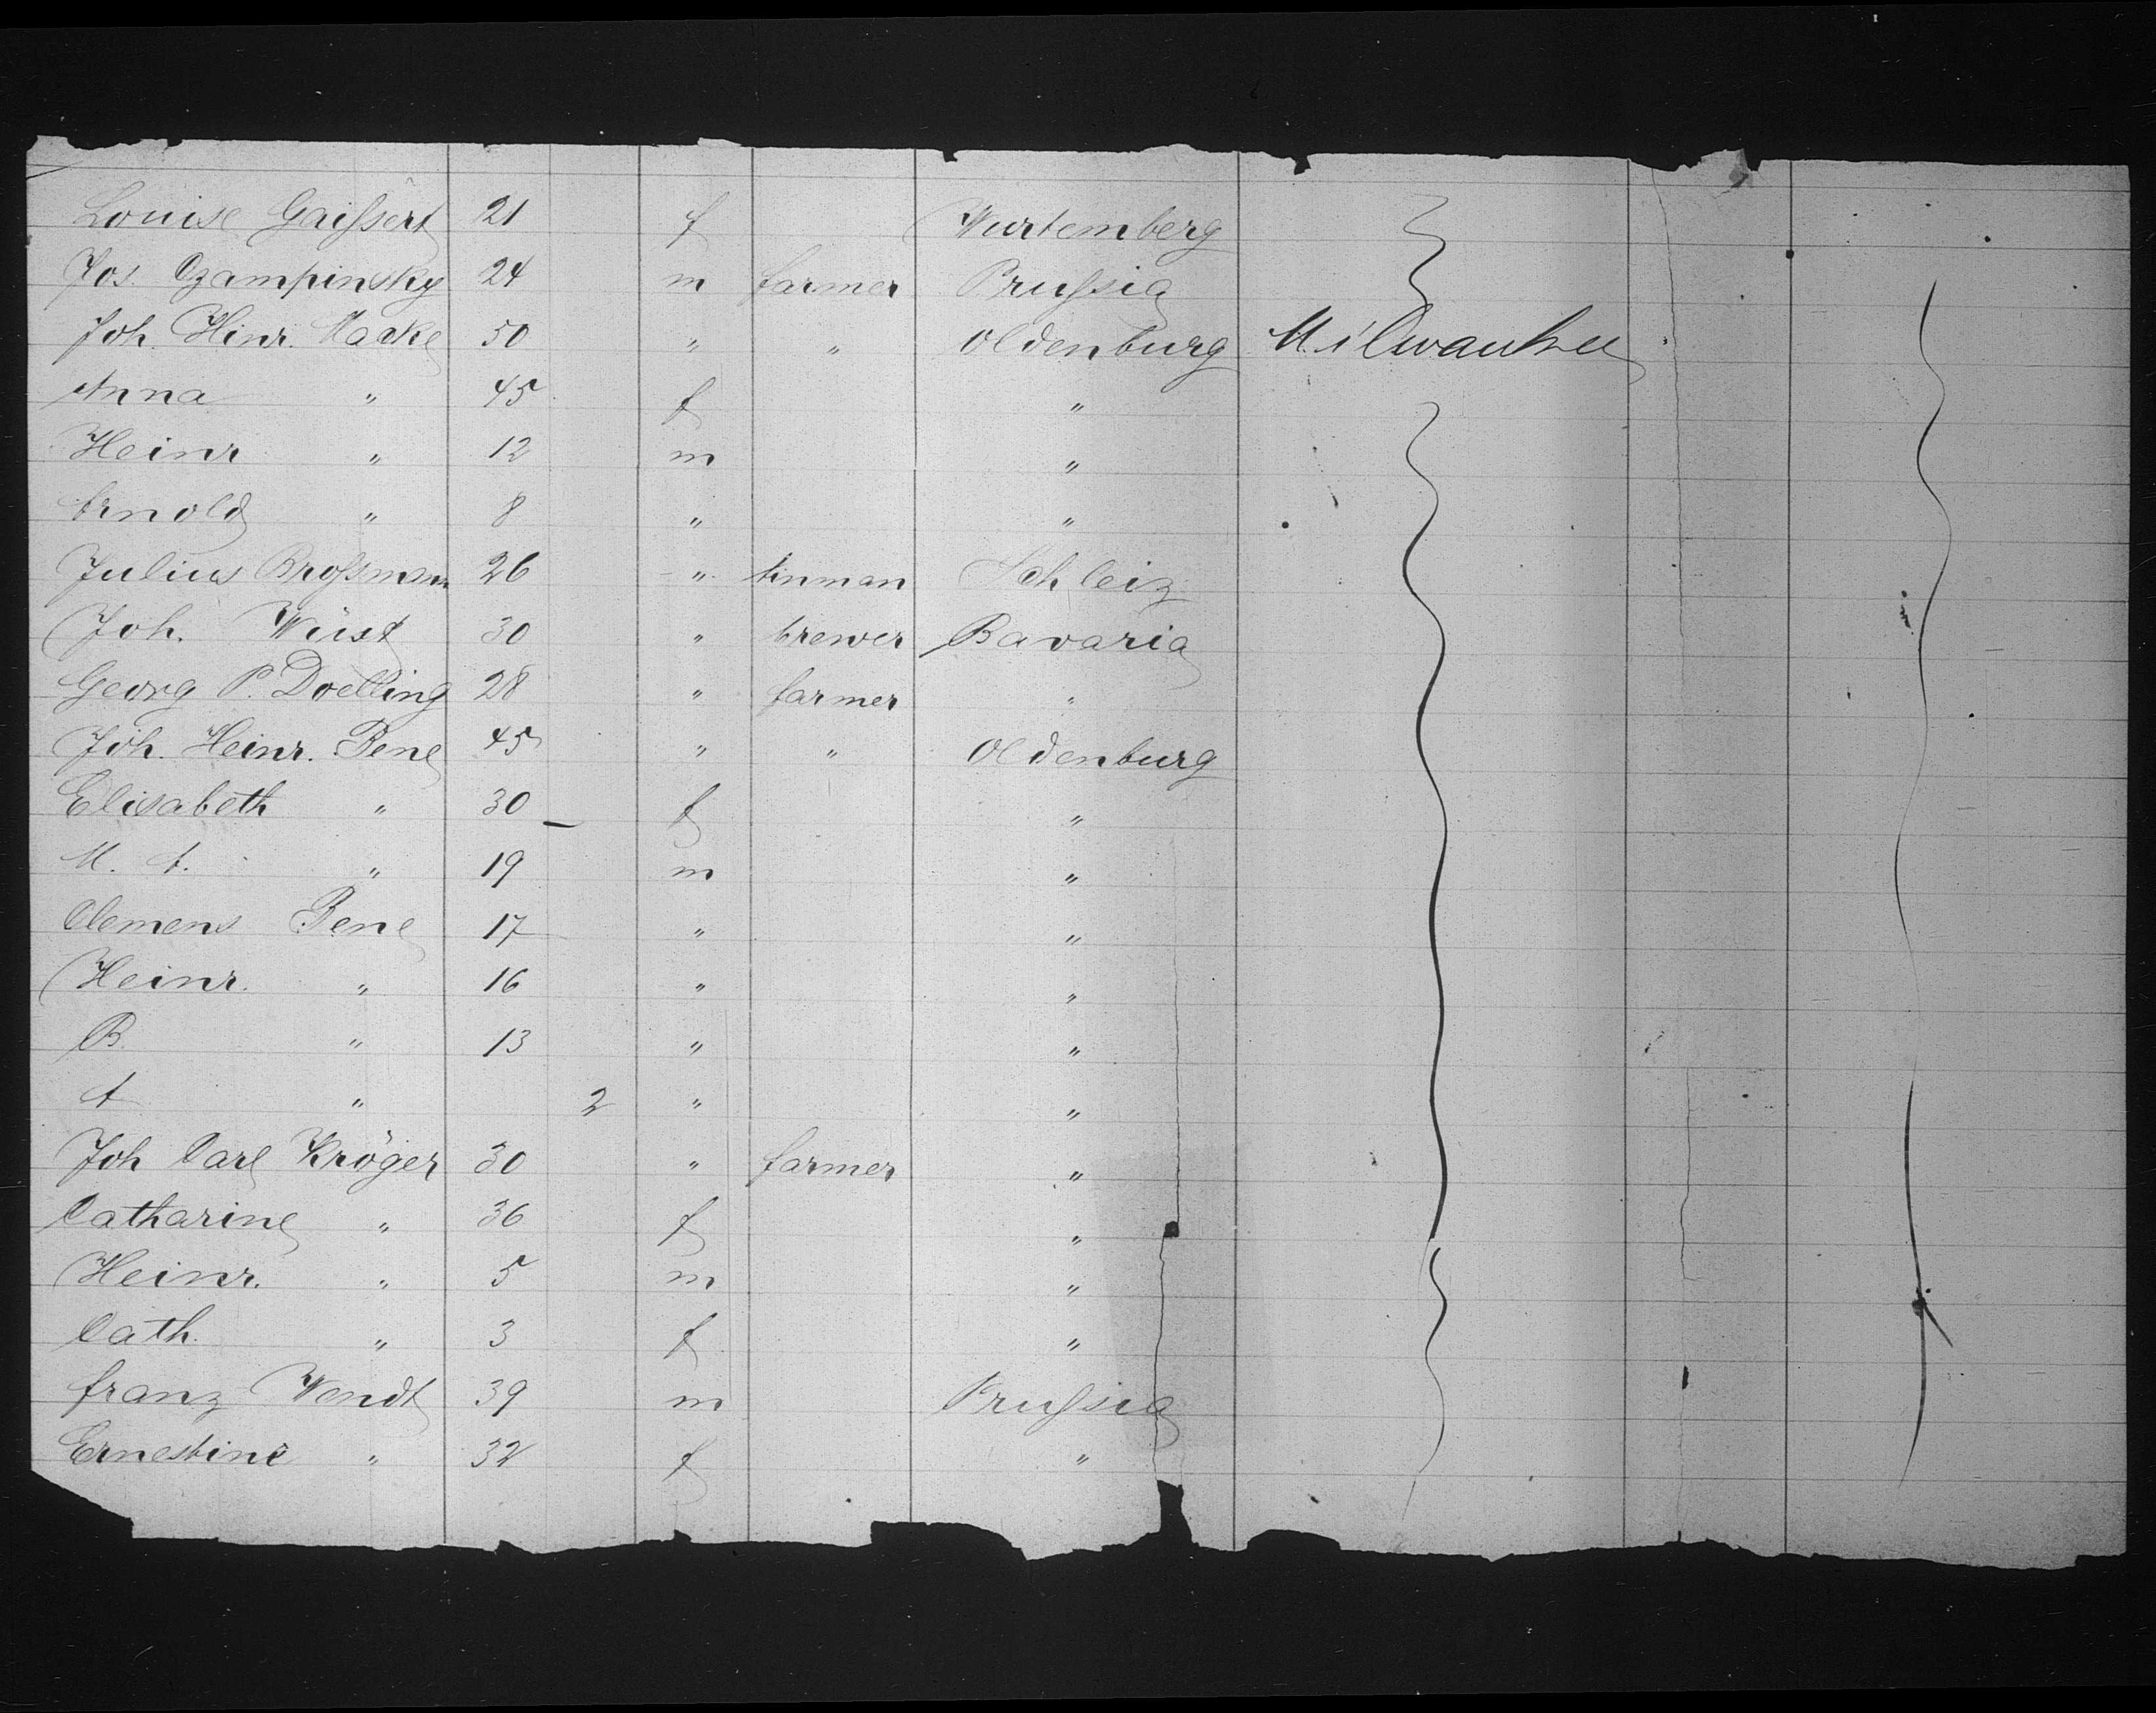 Louise Gaißert 21 f Wurtemberg
Jos. Czampinsky 24 m farmer Prußia
Joh. Hinr. Macke 50 " " Oldenburg Milwaukee
Anna " 45 f "
Heinr " 12 m "
Arnold " 8 " "
Julius Broßmann 26 " tinman Schleiz
Joh. Wüst 30 " brewer Bavaria
Georg P. Doelling 28 " farmer "
Joh. Heinr. Bene 45 " " Oldenburg
Elisabeth " 30 f "
M. A. " 19 m "
Clemens Bene 17 " "
Heinr. " 16 " "
B. " 13 " "
A " 2 " "
Joh Carl Kröger 30 " farmer "
Catharine " 36 f "
Heinr. " 5 m "
Cath. " 3 f "
Franz Wendt 39 m Prußia
Ernestine " 32 f "